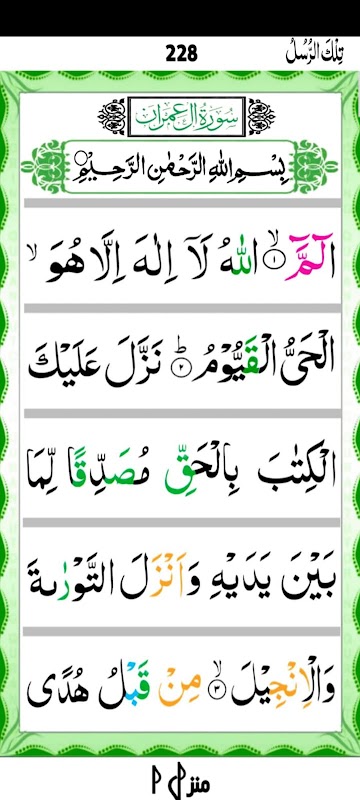 228 تِلْكَ الرُّسُلُ
سُوْرَةُ اٰلِ عِمْرَان
بِسْمِ اللّٰهِ الرَّحْمٰنِ الرَّحِيْمِ
الٓمّٓ ۙ‏﴿۱﴾ اللّٰهُ لَاۤ اِلٰهَ اِلَّا هُوَ ۙ
الْحَىُّ الْقَيُّوْمُ ؕ‏﴿۲﴾ نَزَّلَ عَلَيْكَ
الْكِتٰبَ بِالْحَقِّ مُصَدِّقًا لِّمَا
بَيْنَ يَدَيْهِ وَاَنْزَلَ التَّوْرٰٮةَ
وَالْاِنْجِيْلَ ۙ‏﴿۳﴾ مِنْ قَبْلُ هُدًى
منزل ۱